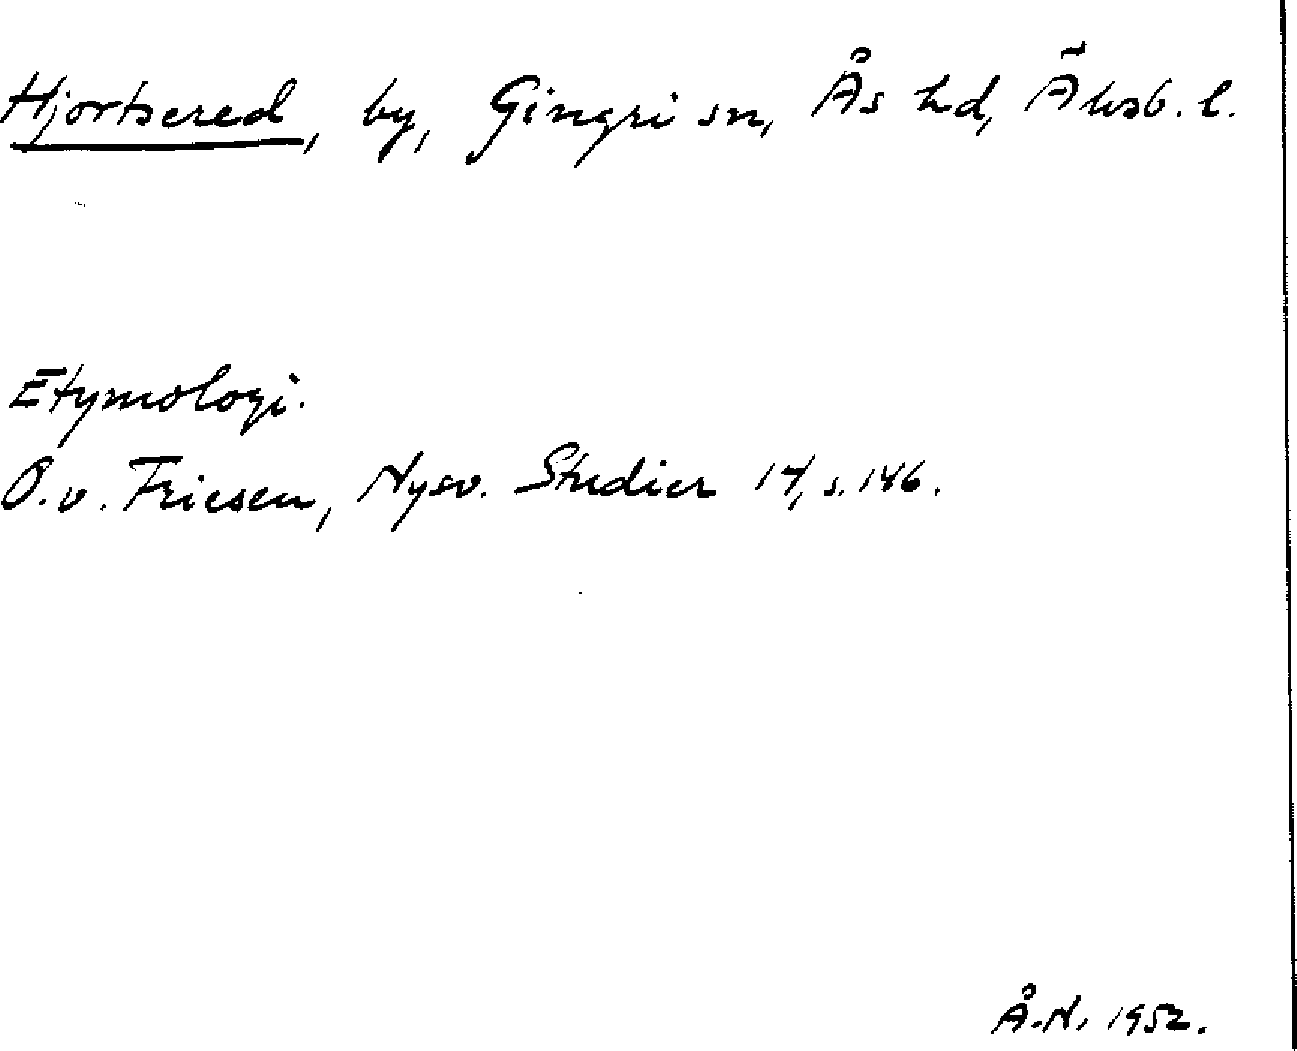 Hjortsered, by, Gingri sn, Ås hd, Älvsb. l.
Etymologi.
O. v. Friesen, Nysv. Studier 14, s. 146.
Å. N. 1952.